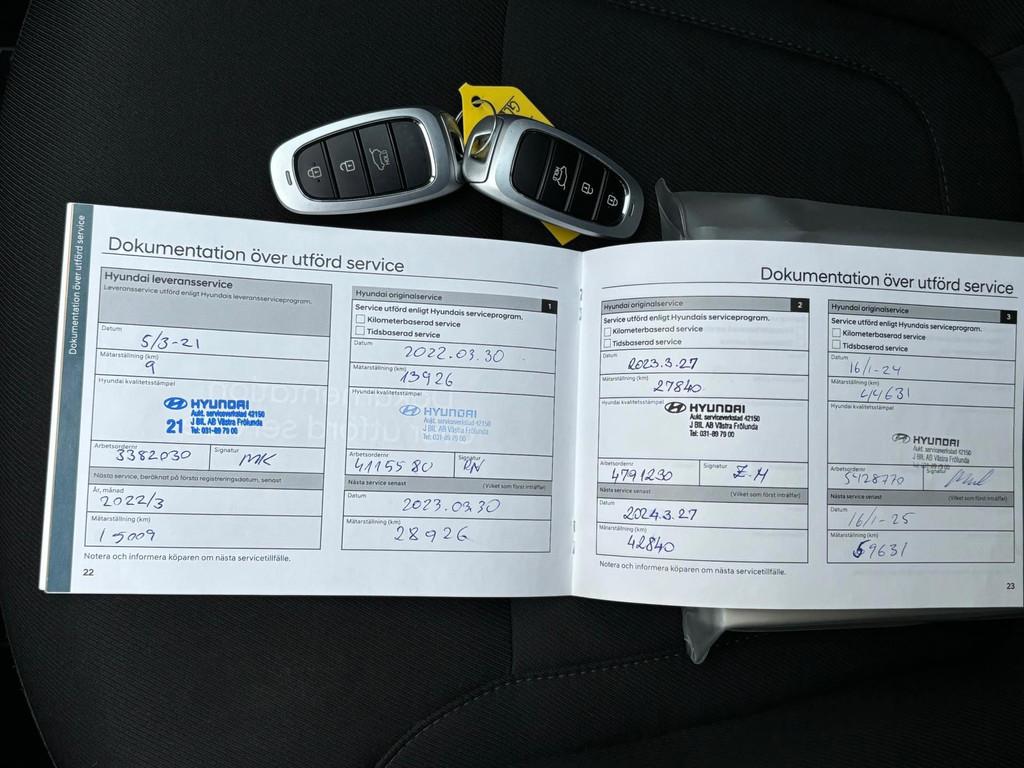 HOLD
HOLD
Dokumentation över utförd service
Dokumentation över utförd service
Hyundai leveransservice
Leveransservice utförd enligt Hyundais leveransserviceprogram.
Datum
5/3-21
Mätarställning (km)
9
Hyundai kvalitetsstämpel
HYUNDAI
Aukt. serviceverkstad 42150
J BIL AB Västra Frölunda
21 Tel: 031-89 79 00
Arbetsordernr
3382030
Signatur
MK
Nästa service, beräknat på första registreringsdatum, senast
År, månad
2022/3
Mätarställning (km)
15009
Notera och informera köparen om nästa servicetillfälle.
22
Hyundai originalservice 1
Service utförd enligt Hyundais serviceprogram.
Kilometerbaserad service
Tidsbaserad service
Datum
2022.03.30
Mätarställning (km)
13926
Hyundai kvalitetsstämpel
HYUNDAI
Aukt. serviceverkstad 42150
J BIL AB Västra Frölunda
Tel: 031-89 79 00
Arbetsordernr
4115580
Signatur
RN
Nästa service senast (Vilket som först inträffar)
Datum
2023.03.30
Mätarställning (km)
28926
Dokumentation över utförd service
Hyundai originalservice 2
Service utförd enligt Hyundais serviceprogram.
Kilometerbaserad service
Tidsbaserad service
Datum
2023.3.27
Mätarställning (km)
27840
Hyundai kvalitetsstämpel
HYUNDAI
Aukt. serviceverkstad 42150
J BIL AB Västra Frölunda
Tel: 031-89 79 00
Arbetsordernr
4791230
Signatur
Z.H
Nästa service senast (Vilket som först inträffar)
Datum
2024.3.27
Mätarställning (km)
42840
Notera och informera köparen om nästa servicetillfälle.
Hyundai originalservice 3
Service utförd enligt Hyundais serviceprogram.
Kilometerbaserad service
Tidsbaserad service
Datum
16/1-24
Mätarställning (km)
44631
Hyundai kvalitetsstämpel
HYUNDAI
Aukt. serviceverkstad 42150
J BIL AB Västra Frölunda
Tel: 031-89 79 00
Arbetsordernr
5428770
Signatur
Nästa service senast (Vilket som först inträffar)
Datum
16/1-25
Mätarställning (km)
59631
23